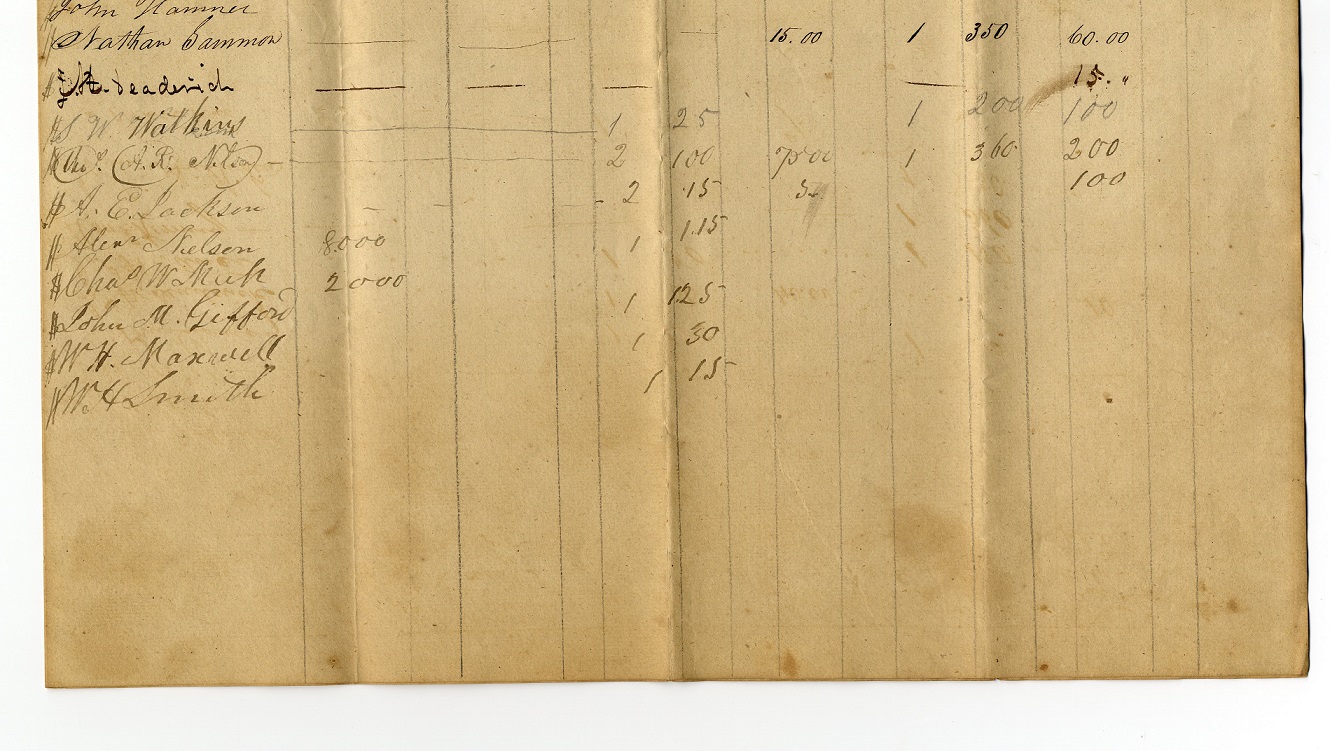 John Hamner
Nathan Gammon 15.00 1 350 60.00
Deaderick 15. "
S W. Watkins 1 25 1 200 100
Thos. A. R. Nelson 2 100 7500 1 360 200
A. E. Jackson 2 15 5 100
Alexr Nelson 8000 1 115
Chas W Meek 2000
John M. Gifford 1 125
W. H. Maxwell 1 30
W H Smith 1 15